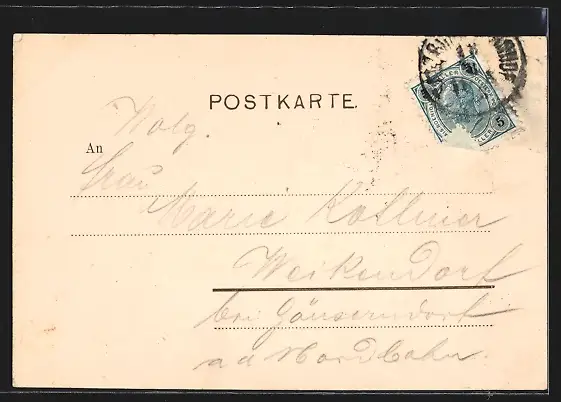 POSTKARTE.
Wolg.
An
Frau
Marie Kollmer
Weikendorf
bei Gänserndorf
a d Nordbahn.
5